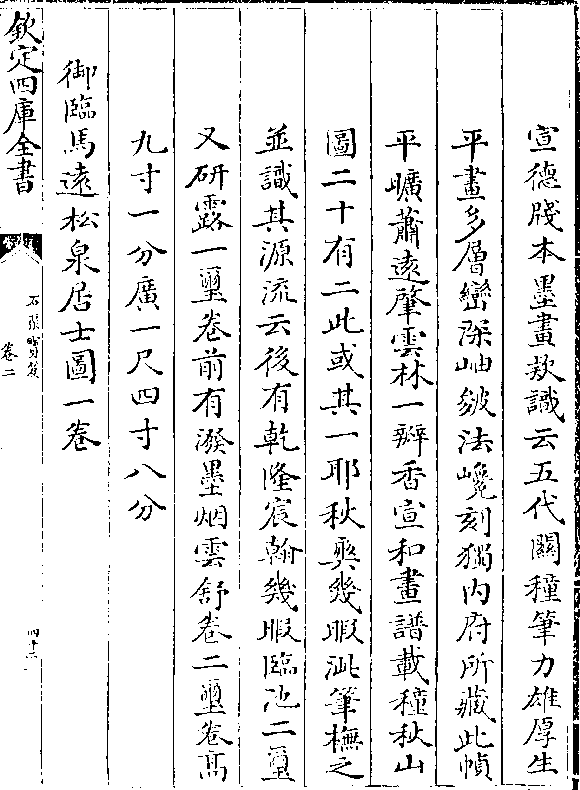 宣德牋本墨畫欵識云五代關穜筆力雄厚生
平畫多層巒深岫皴法巉刻獨内府所藏此幀
平曠蕭遠肇雲林一瓣香宣和畫譜載穜秋山
圖二十有二此或其一耶秋爽幾暇泚筆橅之
並識其源流云後有乾隆宸翰幾暇臨池二璽
又研露一璽卷前有潑墨烟雲舒卷二璽卷髙
九寸一分廣一尺四寸八分
御臨馬遠松泉居士圖一卷
欽定四庫全書
石渠寳笈
卷二
四十三